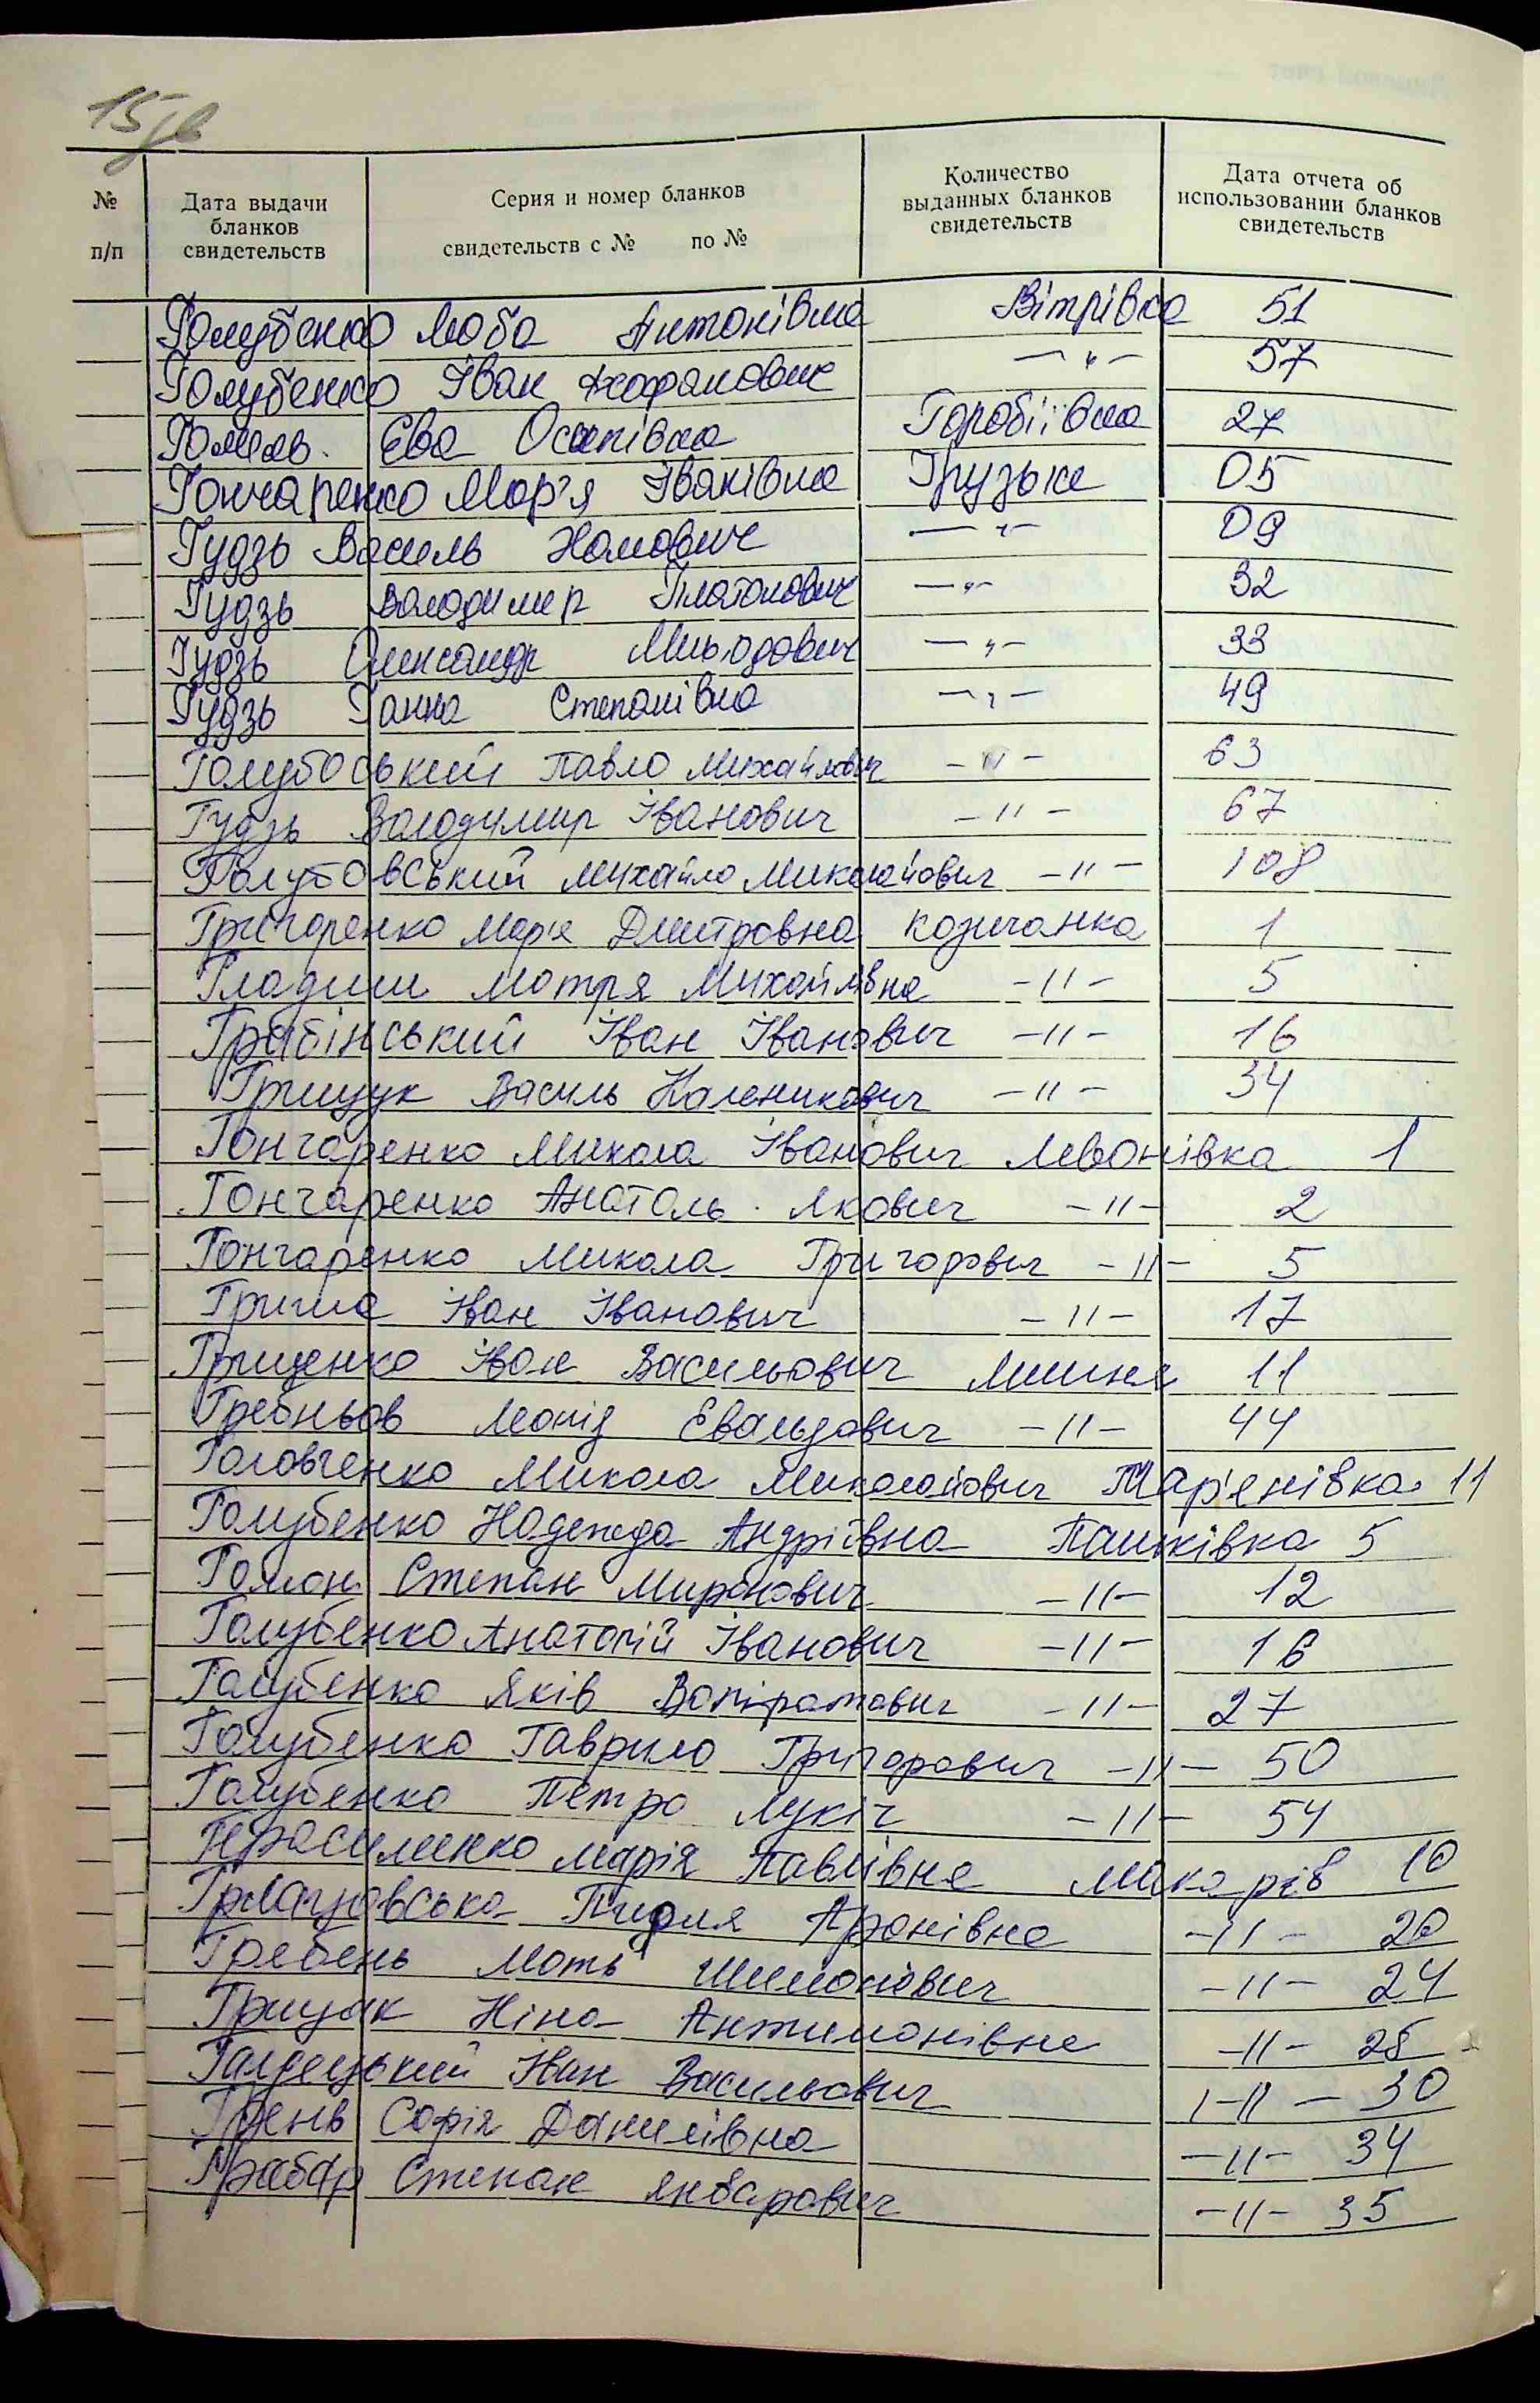 15зв
№ п/п
Дата выдачи бланков свидетельств
Серия и номер бланков свидетельств с № по №
Количество выданных бланков свидетельств
Дата отчета об использовании бланков свидетельств
Голубенко Люба Антонівна Вітрівка 51
Голубенко Іван -"- 57
Ева Осипівна Горобіївна 27
Гончаренко Мар'я Іванівна Грузьке 05
Гудзь Василь Хомович -"- 09
Гудзь Володимир Платонович -"- 32
Гудзь Олександр -"- 33
Гудзь Ганна Степанівна -"- 49
Павло Михайлович -"- 63
Гудзь Володимир Іванович -"- 67
Голубовський Михайло Миколайович -"- 108
Григоренко Мар'я Дмитровна Козичанка 1
Гладиш Мотря Михайлівна -"- 5
Грабінський Іван Іванович -"- 16
Грищук Василь Каленикович -"- 34
Гончаренко Микола Іванович Леонівка 1
Гончаренко Анатоль Якович -"- 2
Гончаренко Микола Григорович -"- 5
Гриша Іван Іванович -"- 17
Грищенко Іван Васильович 11
Гребньов Леонід Евальдович -"- 44
Головченко Микола Миколайович Мар'янівка 11
Голубенко Надежда Андріївна Пашківка 5
Степан Миронович -"- 12
Голубенко Анатолій Іванович -"- 16
Голубенко Яків -"- 27
Голубенко Гаврило Григорович -"- 50
Голубенко Петро Лукіч -"- 54
Герасименко Марія Павлівна Макарів 10
Аронівна -"- 20
Гребень Моть Шимонович -"- 24
Грицак Ніна Антимонівна -"- 28
Іван Васильович -"- 30
Софія Данилівна -"- 34
Грабар Степан Январович -"- 35